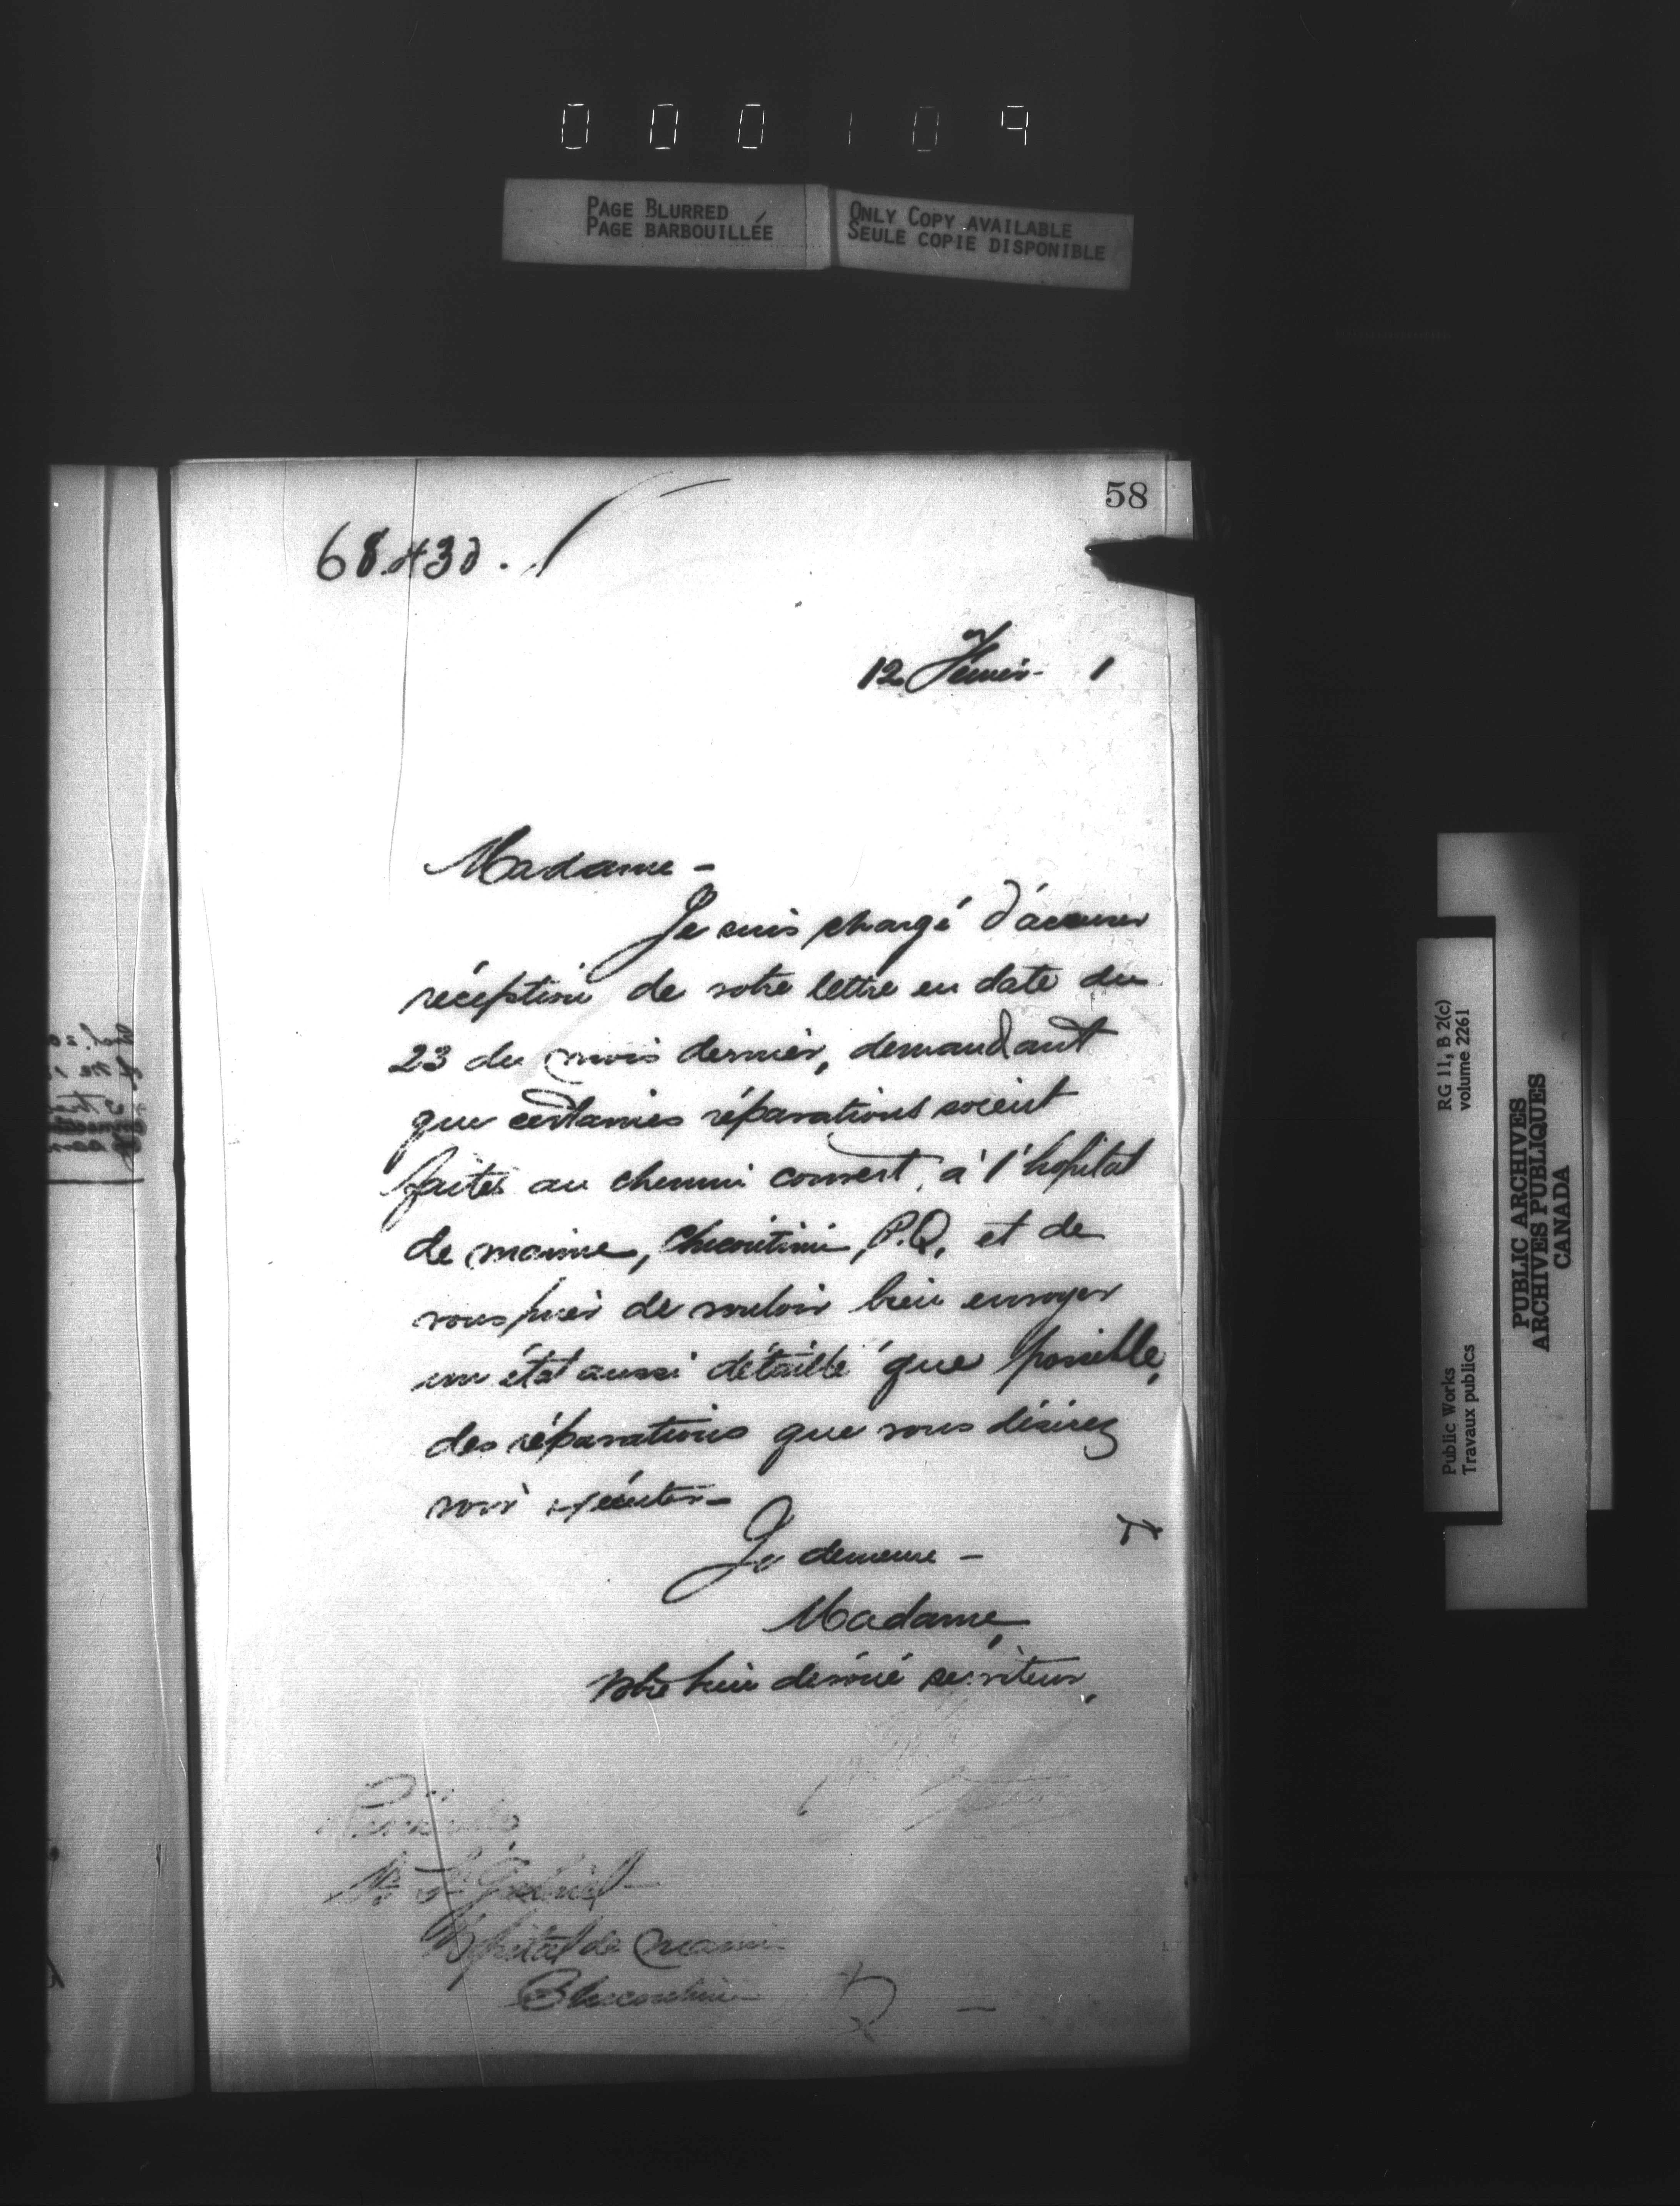 000109
PAGE BLURRED
PAGE BARBOUILLÉE
ONLY COPY AVAILABLE
SEULE COPIE DISPONIBLE
58
12 Février 1
Madame -
Je suis chargé d'accuser
réception de votre lettre en date du
23 du mois dernier, demandant
que certaines réparations soient
faites au chemin couvert, à l'hopital
de marine, Chicoutimi, P.Q, et de
vous prier de vouloir bien envoyer
un état aussi détaillé que possible,
des réparations que vous désirez
voir exécuter -
Je demeure -
Madame,
Votre bien dévoué serviteur,
St Gabriel -
Hôpital de Marine
Chicoutimi
Q -
RG 11, B 2(c)
volume 2261
Public Works
Travaux publics
PUBLIC ARCHIVES
ARCHIVES PUBLIQUES
CANADA